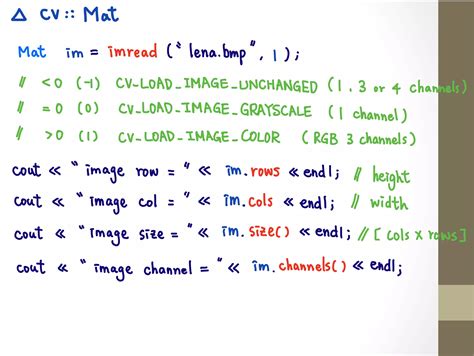 △ cv :: Mat
Mat im = imread ("lena.bmp", 1);
// <0 (-1) CV_LOAD_IMAGE_UNCHANGED (1, 3 or 4 channels)
// =0 (0) CV_LOAD_IMAGE_GRAYSCALE (1 channel)
// >0 (1) CV_LOAD_IMAGE_COLOR (RGB 3 channels)
cout << "image row = " << im.rows << endl; // height
cout << "image col = " << im.cols << endl; // width
cout << "image size = " << im.size() << endl; // [cols x rows]
cout << "image channel = " << im.channels() << endl;